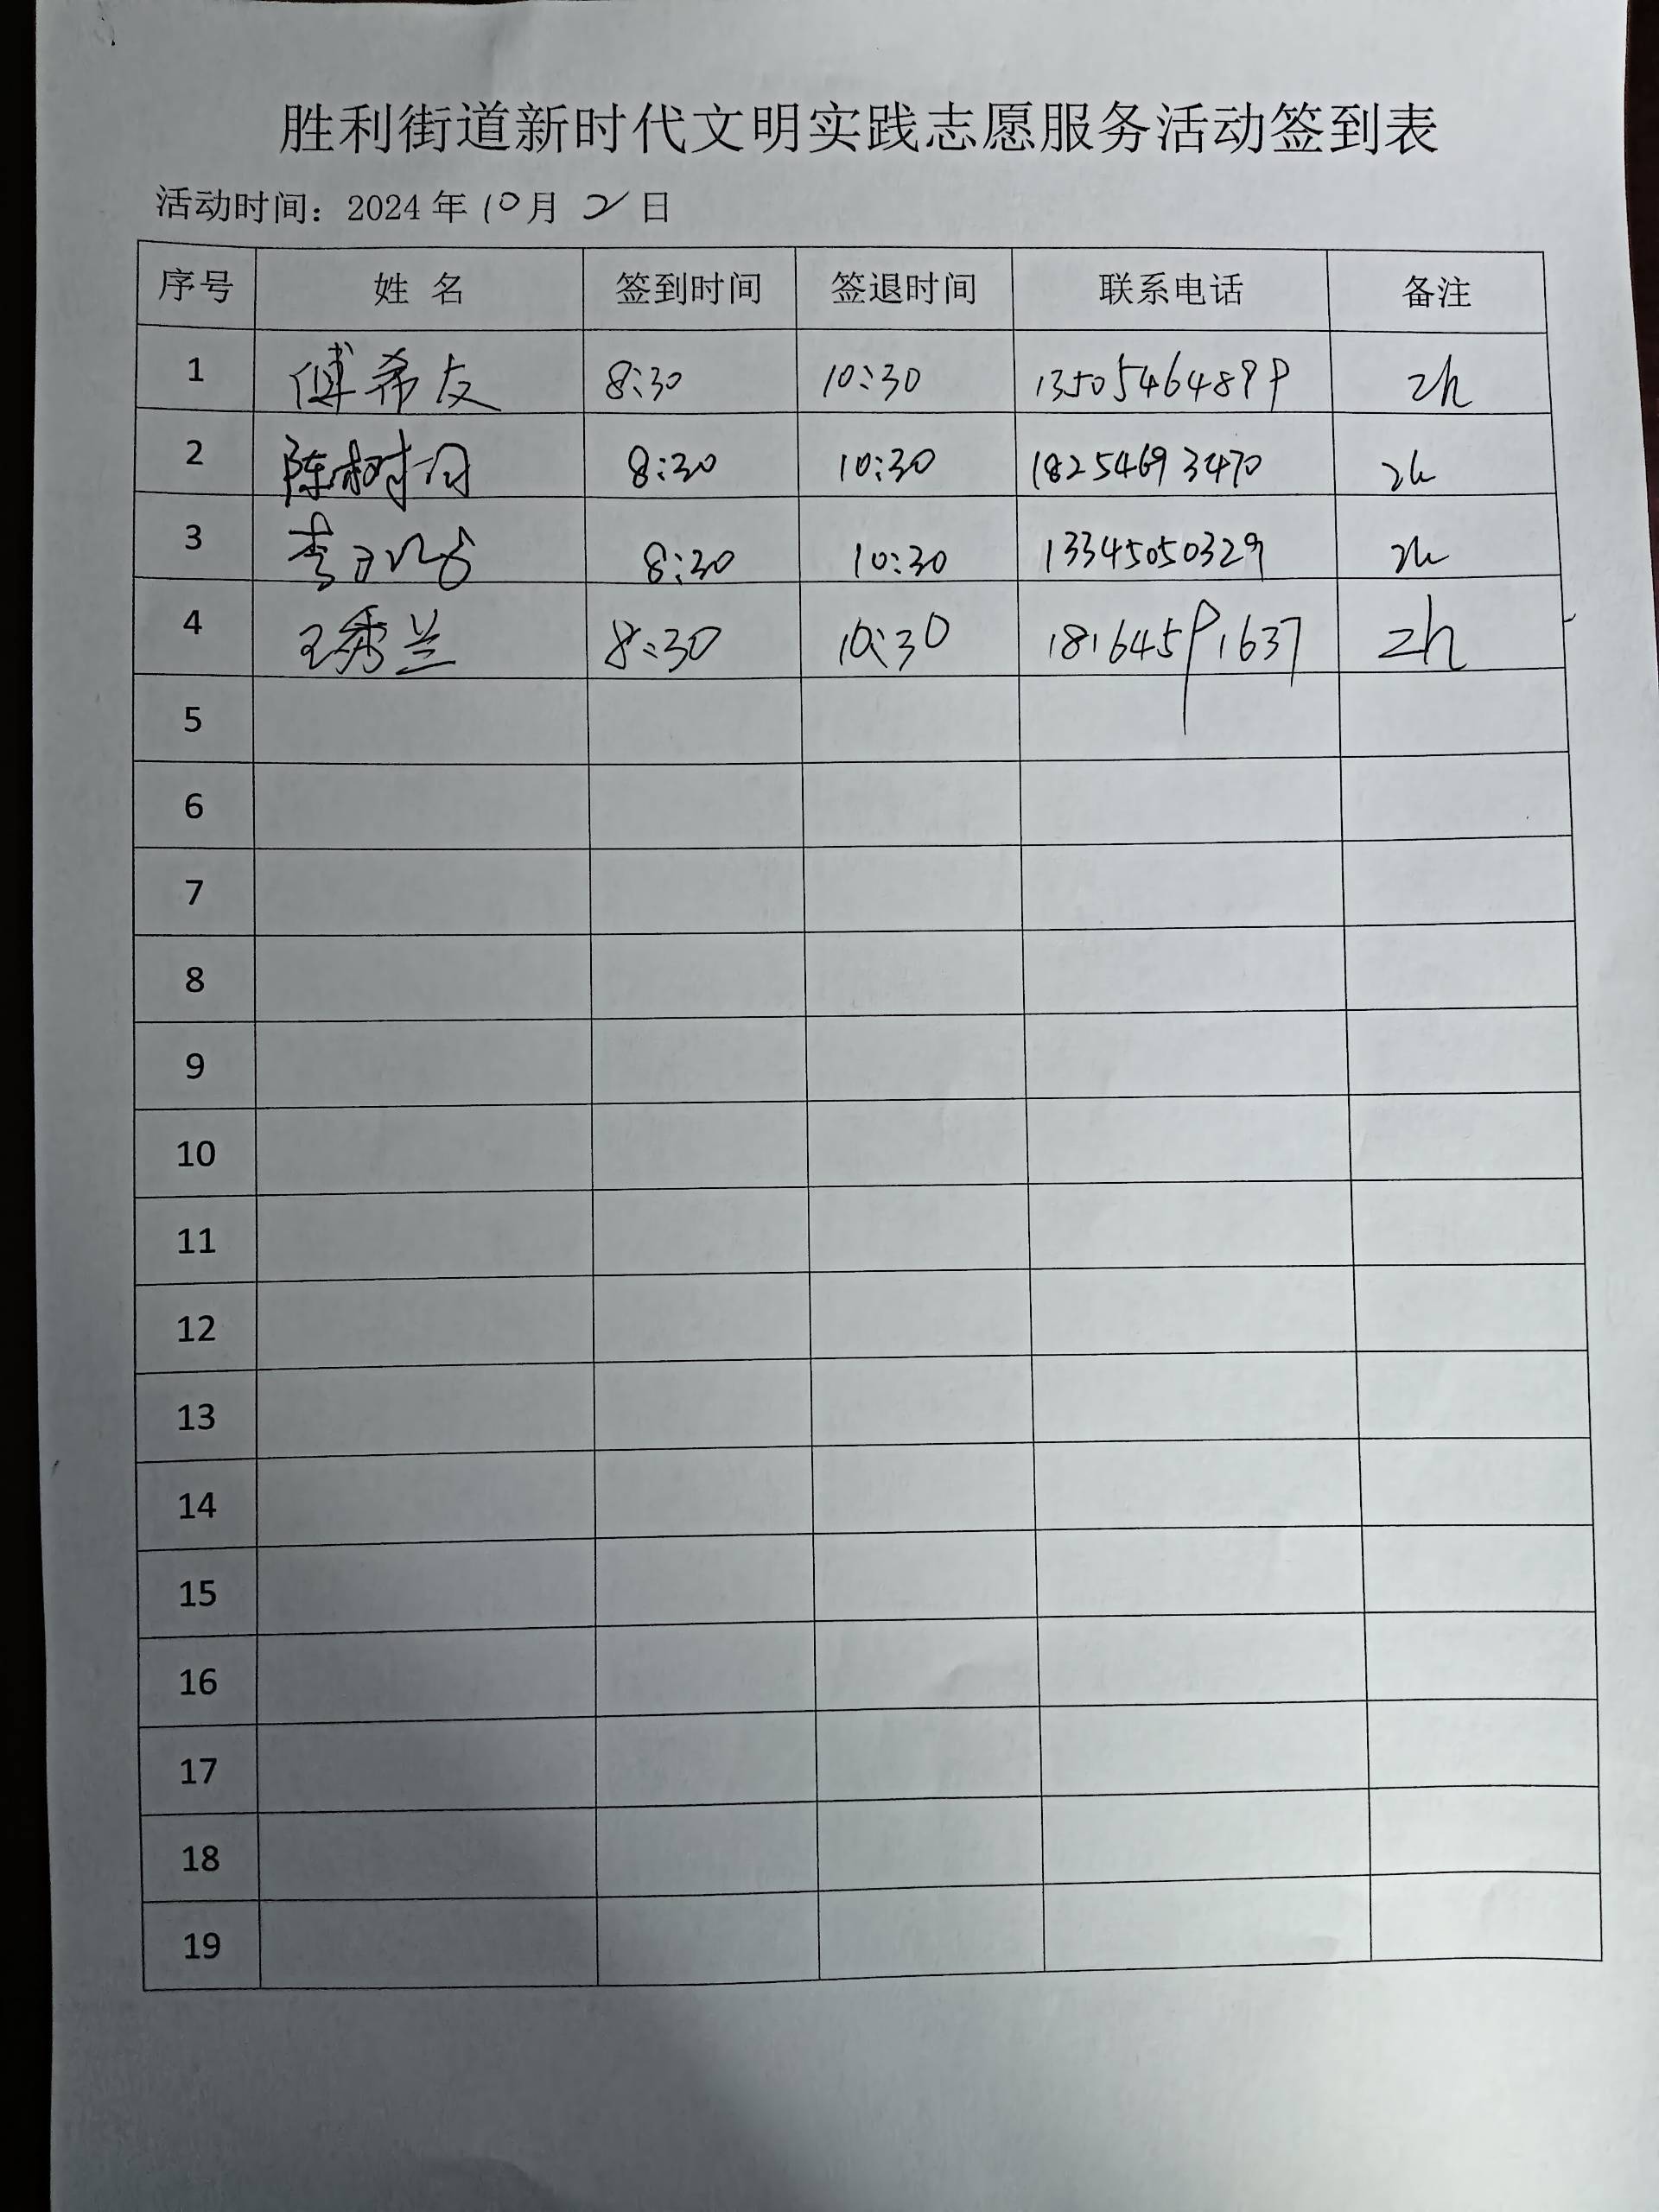 胜利街道新时代文明实践志愿服务活动签到表
活动时间：2024年10月2日
序号 姓 名 签到时间 签退时间 联系电话 备注
1 傅希友 8:30 10:30 13505464899 2h
2 陈树 8:30 10:30 18254693470 2h
3 李 8:30 10:30 13345050329 2h
4 王秀兰 8:30 10:30 18164591637 2h
5
6
7
8
9
10
11
12
13
14
15
16
17
18
19